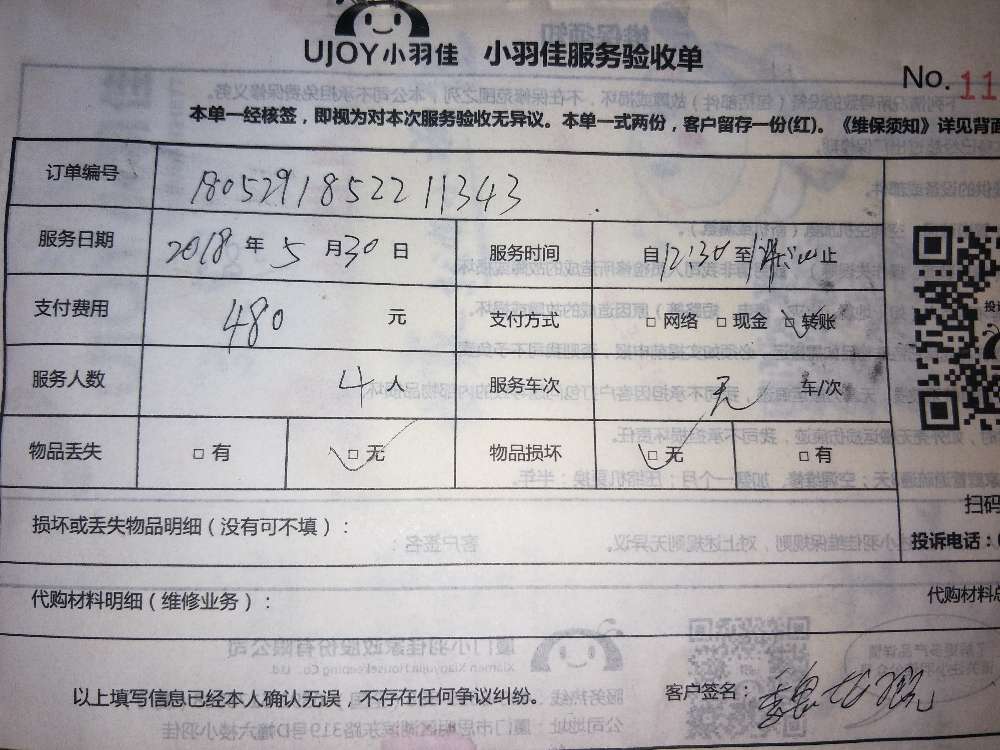 UJOY小羽佳 小羽佳服务验收单
No. 11
本单一经核签，即视为对本次服务验收无异议。本单一式两份，客户留存一份(红)。《维保须知》详见背面
订单编号 180529185221 1343
服务日期 2018 年 5 月 30 日 服务时间 自 12:30 至 止
支付费用 480 元 支付方式 □ 网络 □ 现金 □ 转账
服务人数 4 人 服务车次 无 车/次
物品丢失 □ 有 □ 无 物品损坏 □ 无 □ 有
扫码
损坏或丢失物品明细（没有可不填）：
投诉电话：
代购材料明细（维修业务）：
代购材料总
以上填写信息已经本人确认无误，不存在任何争议纠纷。 客户签名：